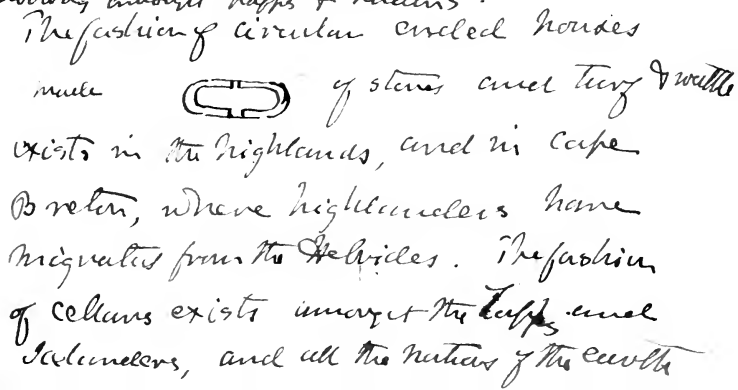 amongst Lapps &
The fashion of circular ended houses
made of stones and turf & wattle
exists in the highlands, and in Cape
Breton, where highlanders have
migrated from the Hebrides. The fashion
of cellars exists amongst the Lapps and
Icelanders, and all the nations of the earth